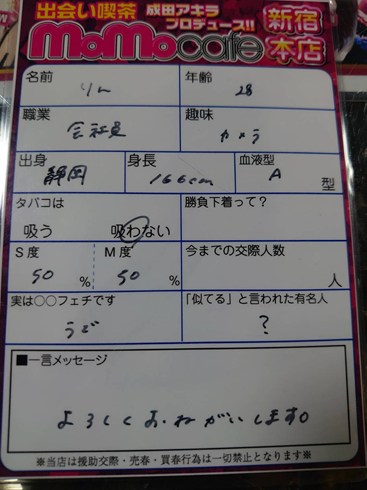 出会い喫茶 成田アキラ プロデュース!! 新宿
MoMocafe 本店
名前 りん 年齢 28
職業 会社員 趣味 カメラ
出身 静岡 身長 166cm 血液型 A 型
タバコは 勝負下着って?
吸う 吸わない
S度 M度 今までの交際人数
50 % 50 % 人
実は○○フェチです 「似てる」と言われた有名人
うで ?
■一言メッセージ
よろしくおねがいします。
※当店は援助交際・売春・買春行為は一切禁止となります※